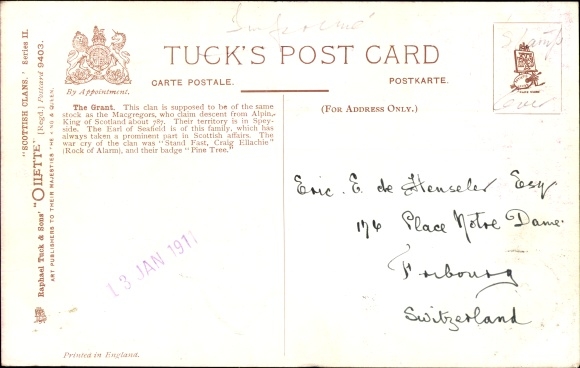 "SCOTTISH CLANS." Series II.
Raphael Tuck & Sons' "OILETTE" [Regd.] Postcard 9403.
ART PUBLISHERS TO THEIR MAJESTIES THE KING & QUEEN.
By Appointment.
TUCK'S POST CARD
CARTE POSTALE.
POSTKARTE.
Stamp
Over
The Grant. This clan is supposed to be of the same
stock as the Macgregors, who claim descent from Alpin,
King of Scotland about 787. Their territory is in Spey-
side. The Earl of Seafield is of this family, which has
always taken a prominent part in Scottish affairs. The
war cry of the clan was "Stand Fast, Craig Ellachie"
(Rock of Alarm), and their badge "Pine Tree."
(FOR ADDRESS ONLY.)
Eric. E. de Henseler Esq
176 Place Notre Dame.
Fribourg
Switzerland
13 JAN 1911
Printed in England.